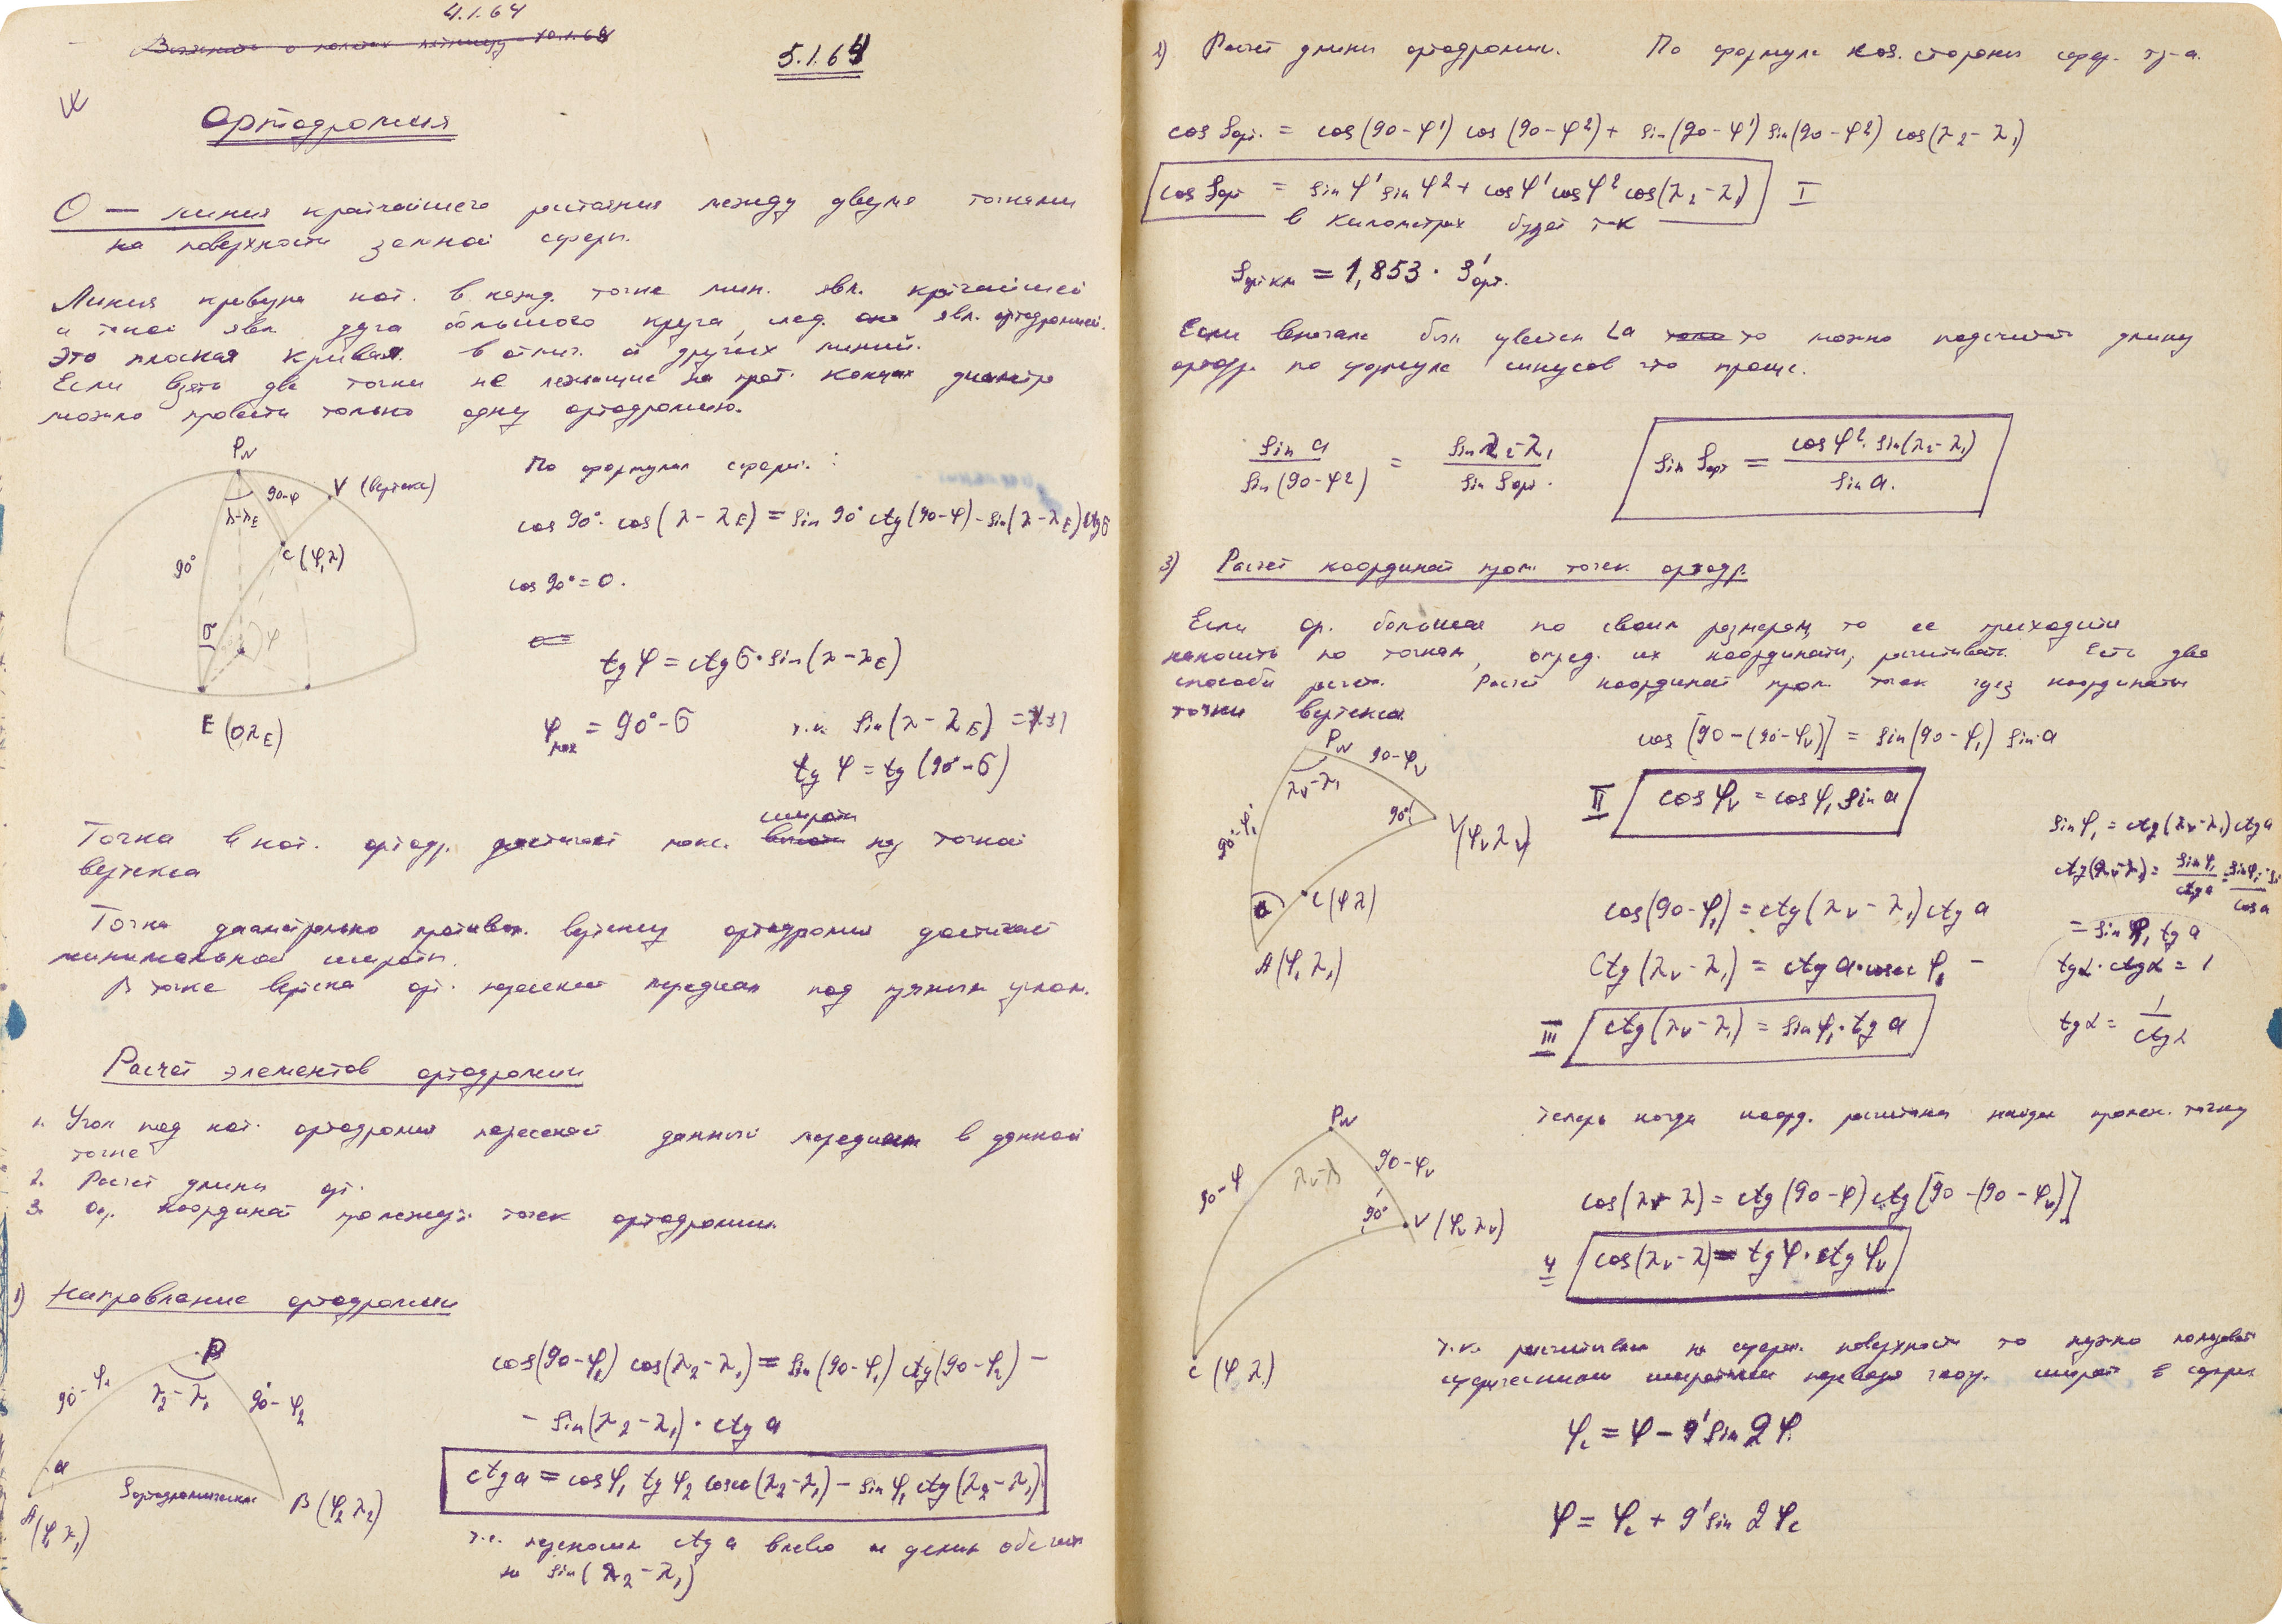 4.1.64
5.1.64
Ортодромия
О — линия кратчайшего растояния между двумя точками
на поверхности земной сферы.
Линия кривизна кот. в кажд. точке мин. явл. кратчайшей
и такой явл. дуга большого круга, след. она явл. ортодромией.
Это плоская кривая в отлич. от других линий.
Если взять две точки не лежащие на прот. концах диаметра
можно провести только одну ортодромию.
PN
90-φ
V (вертекс)
λ-λE
C (φ,λ)
90°
σ
φ
E (0λE)
По формулам сферич.:
cos 90°· cos(λ-λE) = sin 90° ctg(90-φ) - sin(λ-λE) ctg σ
cos 90° = 0.
tg φ = ctg σ · sin(λ-λE)
φmax = 90° - σ т.к. sin(λ-λE) = 1
tg φ = tg(90°-σ)
широты
Точка в кот. ортодр. достигает макс. наз точкой
вертекса
Точка диаметрально противоп. вертексу ортодромия достигает
минимальной широты.
В точке вертекса орт. пересекает меридиан под прямым углом.
Расчёт элементов ортодромии
1. Угол под кот. ортодромия пересекает данный меридиан в данной
точке
2. Расчёт длины орт.
3. Опр. координат промежут. точек ортодромии.
1) Направление ортодромии
P
90-φ1
λ2-λ1
90-φ2
a
Sортодромическая
A(φ1 λ1)
B (φ2 λ2)
cos(90-φ1) cos(λ2-λ1) = sin(90-φ1) ctg(90-φ2) -
- sin(λ2-λ1) · ctg a
ctg a = cos φ1 tg φ2 cosec(λ2-λ1) - sin φ1 ctg(λ2-λ1)
т.е. переносим ctg a влево и делим обе части
на sin(λ2-λ1)
2) Расчёт длины ортодромии. По формуле кос. стороны сфер. тр-а.
cos Sорт. = cos(90-φ1) cos(90-φ2) + sin(90-φ1) sin(90-φ2) cos(λ2-λ1)
cos Sорт = sin φ1 sin φ2 + cos φ1 cos φ2 cos(λ2-λ1) I
в километрах будет так
Sорт км = 1,853 · S'орт.
Если вначале был La то можно подсчитать длину
ортодр. по формуле синусов что проще.
sin a / sin(90-φ2) = sin λ2-λ1 / sin Sорт.
sin Sорт = cos φ2 · sin(λ2-λ1) / sin a.
3) Расчёт координат пром. точек ортодр.
Если ор. большая по своим размерам, то ее приходится
наносить по точкам, опред. их координаты, рассчитывать. Есть два
способа расчёта. Расчёт координат пром. точек через координаты
точки вертекса.
PN
90-φv
λv-λ1
90-φ1
90°
V(φv λv)
a
C (φ λ)
A (φ1 λ1)
cos [90-(90-φv)] = sin(90-φ1) sin a
II cos φv = cos φ1 sin a
cos(90-φ1) = ctg(λv-λ1) ctg a
Ctg(λv-λ1) = ctg a · cosec φ1 -
III ctg(λv-λ1) = sin φ1 · tg a
sin φ1 = ctg(λv-λ1) ctg a
ctg(λv-λ1) = sin φ1 / ctg a = sin φ1 · si / cos a
= sin φ1 tg a
tg α · ctg α = 1
tg α = 1 / ctg α
Теперь когда коорд. расчитаны находим промеж. точку
PN
90-φ
λv-λ
90-φv
90°
V (φv λv)
C (φ λ)
cos(λv-λ) = ctg(90-φ) ctg[90-(90-φv)]
4 cos(λv-λ) = tg φ · ctg φv
т.к. расчитываем на сферич. поверхности то нужно пользоват
сферическими широтами переводя геогр. широт в сферич
φc = φ - 9' sin 2φ.
φ = φc + 9' sin 2φc